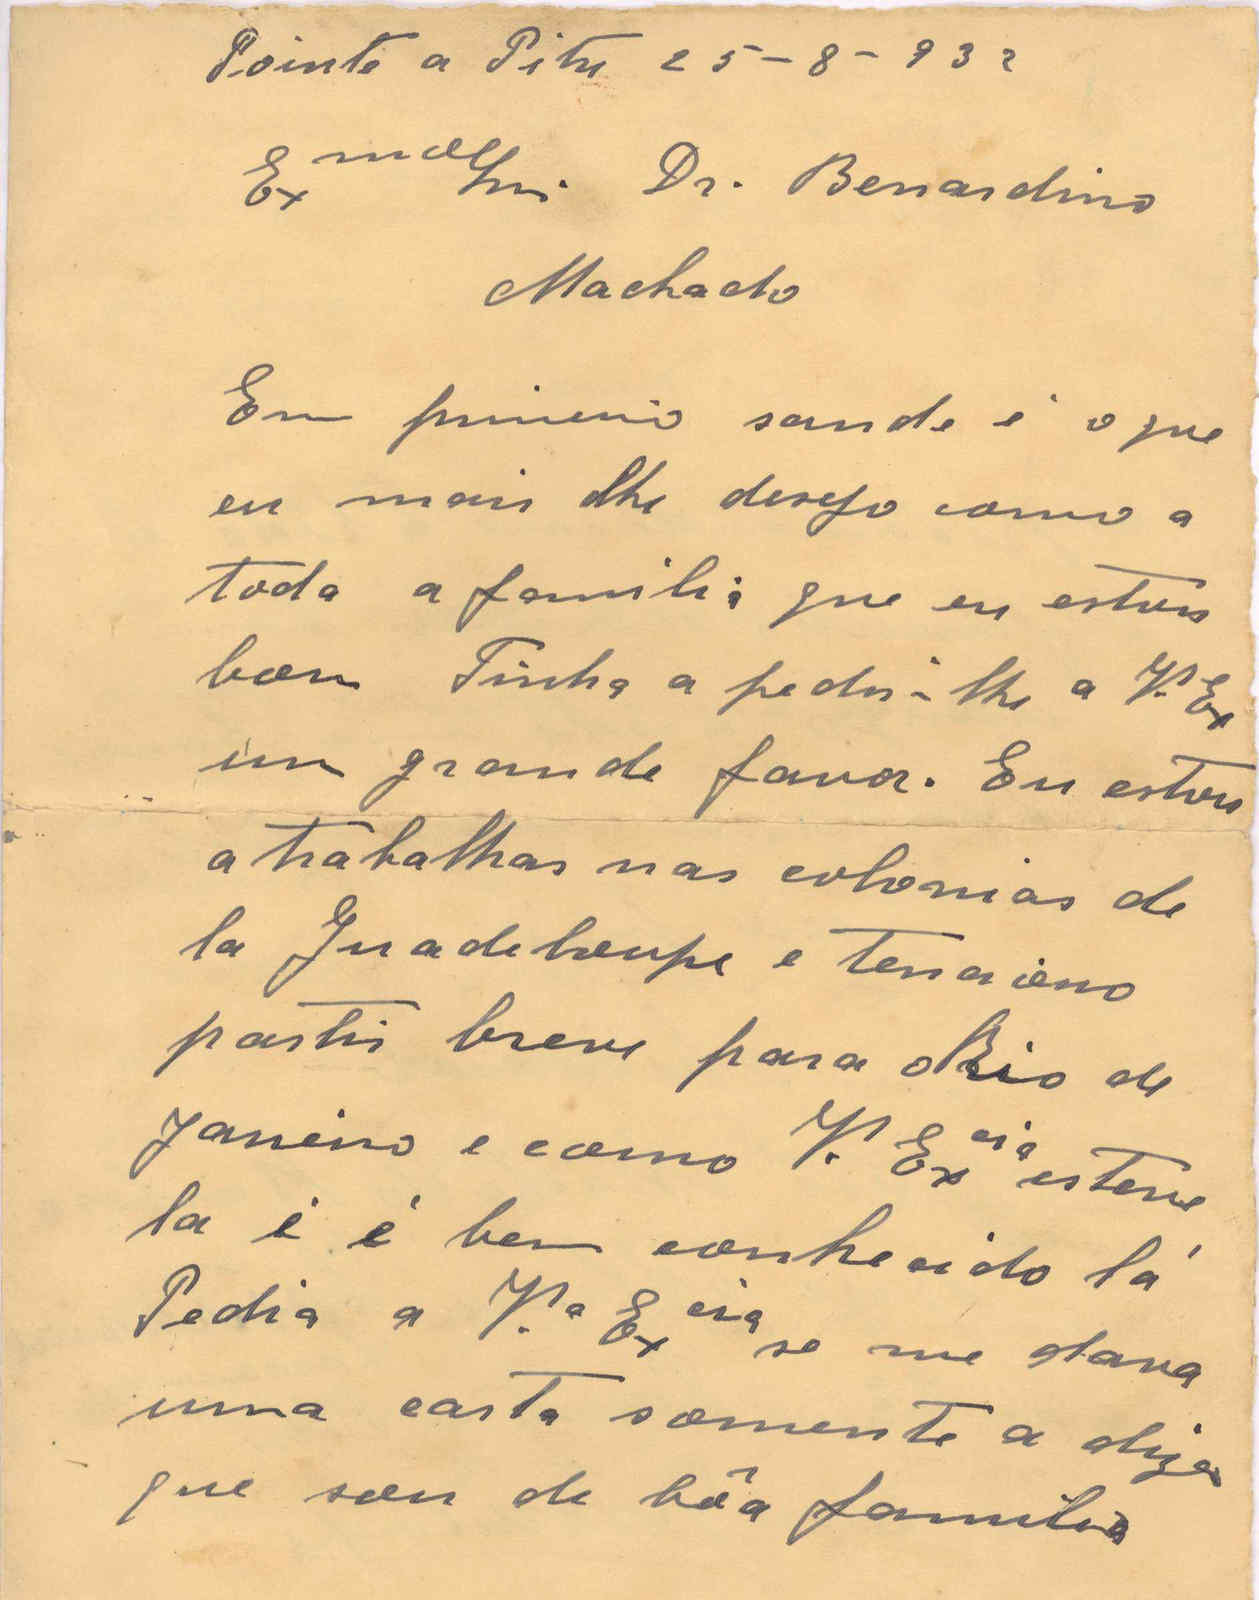 Pointe a Pitre 25-8-932
Exmo Snr. Dr. Benardino
Machado
Em primeiro saude é o que
eu mais lhe desejo como a
toda a familia que eu estou
bom Tinha a pedir-lhe a V. Ex
um grande favor. Eu estou
a trabalhar nas colonias de
la Guadeloupe e tenciono
partir breve para o Rio de
Janeiro e como V. Excia esteve
la é é bem conhecido lá
Pedia a V.a Excia se me dava
uma carta somente a dizer
que sou de bôa familia